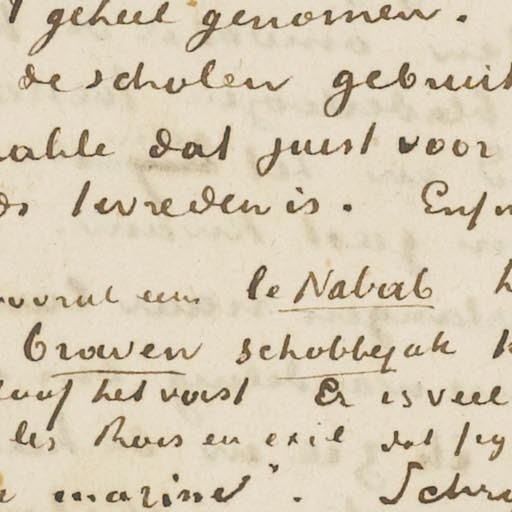 geheel genomen.
de scholen gebruik
dat juist voor
tevreden is. Enf
le Nabab
braven schobbejak
het vorst Er is veel
les Rois en exil dat
marine". Schr